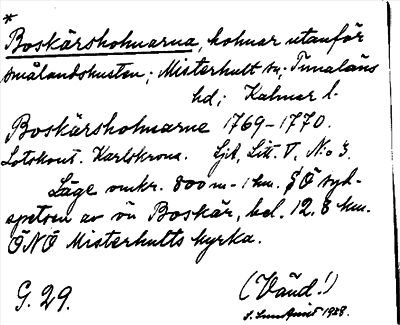 *
Boskärsholmarna, holmar utanför
smålandskusten; Misterhult sn, Tunaläns
hd; Kalmar l.
Boskärsholmarne 1769–1770.
Lotskont. Karlskrona. Ljil. Lit. V. No 3.
Läge omkr. 800 m – 1 km. SÖ syd-
spetsen av ön Boskär, bel. 12.8 km.
ÖNÖ Misterhults kyrka.
G. 29.
(Vänd!)
1928.